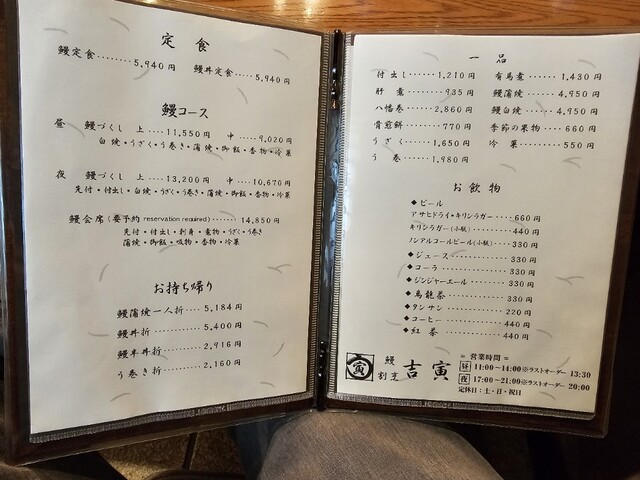 定食
鰻定食‥‥‥‥5,940円
鰻丼定食‥‥5,940円
鰻コース
昼 鰻づくし 上‥‥11,550円 中‥‥9,020円
白焼・うざく・う巻き・蒲焼・御飯・香物・冷菓
夜 鰻づくし 上‥‥13,200円 中‥‥10,670円
先付・付出し・白焼・うざく・う巻き・蒲焼・御飯・香物・冷菓
鰻会席(要予約 reservation required)‥‥‥14,850円
先付・付出し・刺身・煮物・うざく・う巻き
蒲焼・御飯・吸物・香物・冷菓
お持ち帰り
鰻蒲焼一人折‥‥5,184円
鰻丼折‥‥‥‥5,400円
鰻半丼折‥‥‥2,916円
う巻き折‥‥‥2,160円
一品
付出し‥‥‥1,210円
肝煮‥‥‥‥935円
八幡巻‥‥‥2,860円
骨煎餅‥‥‥770円
うざく‥‥‥1,650円
う巻‥‥‥‥1,980円
有馬煮‥‥‥1,430円
鰻蒲焼‥‥‥4,950円
鰻白焼‥‥‥4,950円
季節の果物‥‥660円
冷菓‥‥‥‥550円
お飲物
◆ビール
アサヒドライ・キリンラガー‥‥‥660円
キリンラガー(小瓶)‥‥‥‥440円
ノンアルコールビール(小瓶)‥‥330円
◆ジュース‥‥‥‥330円
◆コーラ‥‥‥‥330円
◆ジンジャーエール‥‥‥330円
◆烏龍茶‥‥‥‥330円
◆タンサン‥‥‥‥220円
◆コーヒー‥‥‥‥440円
◆紅茶‥‥‥‥440円
寅 鰻割烹 吉寅
= 営業時間 =
昼 11:00~14:00※ラストオーダー 13:30
夜 17:00~21:00※ラストオーダー 20:00
定休日:土・日・祝日